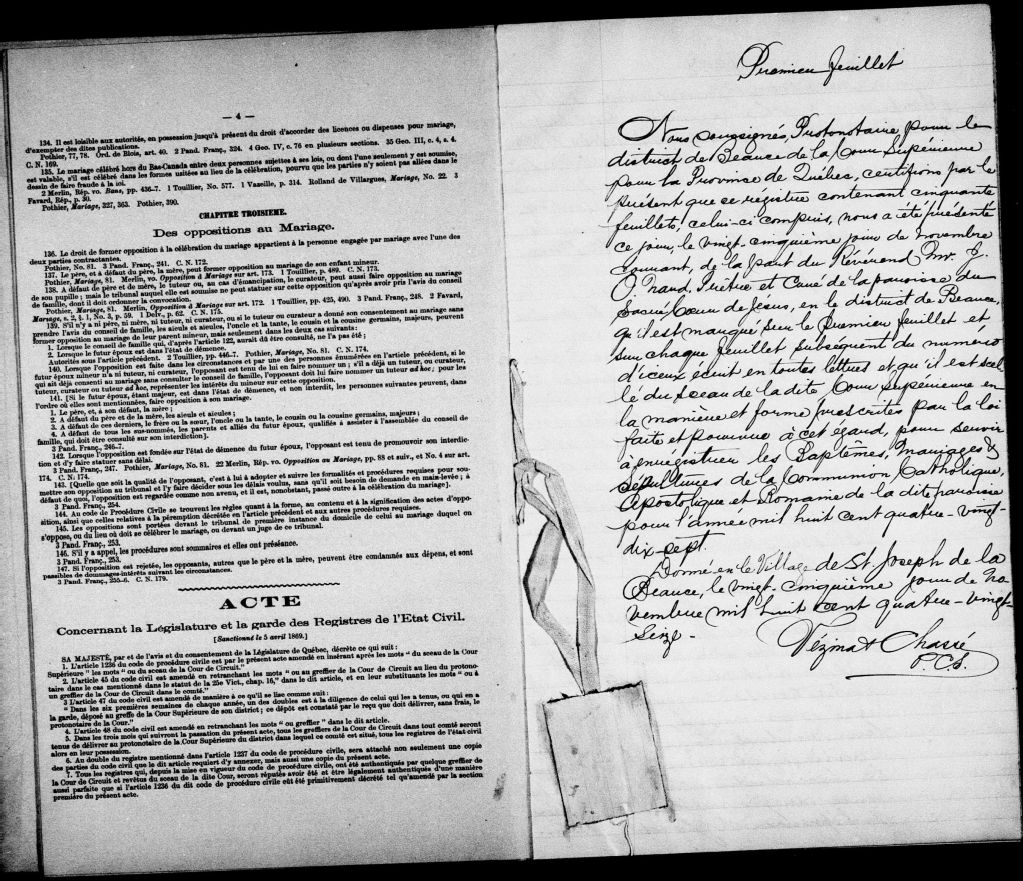 — 4 —
134. Il est loisible aux autorités, en possession jusqu'à présent du droit d'accorder des licences ou dispenses pour mariage,
d'exempter des dites publications.
Pothier, 77, 78. Ord. de Blois, art. 40. 2 Pand. Franç., 324. 4 Geo. IV, c. 76 en plusieurs sections. 35 Geo. III, c. 4, s. 4.
C. N. 169.
135. Le mariage célébré hors du Bas-Canada entre deux personnes sujettes à ses lois, ou dont l'une seulement y est soumise,
est valable, s'il est célébré dans les formes usitées au lieu de la célébration, pourvu que les parties n'y soient pas allées dans le
dessin de faire fraude à la loi.
2 Merlin, Rép. vo. Bans, pp. 436-7. 1 Touillier, No. 577. 1 Vazeille, p. 314. Rolland de Villargues, Mariage, No. 22. 3
Favard, Rép., p. 30.
Pothier, Mariage, 327, 363. Pothier, 390.
CHAPITRE TROISIEME.
Des oppositions au Mariage.
136. Le droit de former opposition à la célébration du mariage appartient à la personne engagée par mariage avec l'une des
deux parties contractantes.
Pothier, No. 81. 3 Pand. Franç., 241. C. N. 172.
137. Le père, et à défaut du père, la mère, peut former opposition au mariage de son enfant mineur.
Pothier, Mariage, 81. Merlin, vo. Opposition à Mariage sur art. 173. 1 Touillier, p. 489. C. N. 173.
138. A défaut de père et de mère, le tuteur ou, au cas d'émancipation, le curateur, peut aussi faire opposition au mariage
de son pupille; mais le tribunal auquel elle est soumise ne peut statuer sur cette opposition qu'après avoir pris l'avis du conseil
de famille, dont il doit ordonner la convocation.
Pothier, Mariage, 81. Merlin, Opposition à Mariage sur art. 172. 1 Touillier, pp. 425, 490. 3 Pand. Franç., 248. 2 Favard,
Mariage, s. 2, § 1, No. 3, p. 59. 1 Delv., p. 62. C. N. 175.
139. S'il n'y a ni père, ni mère, ni tuteur, ni curateur, ou si le tuteur ou curateur a donné son consentement au mariage sans
prendre l'avis du conseil de famille, les aïeuls et aïeules, l'oncle et la tante, le cousin et la cousine germains, majeurs, peuvent
former opposition au mariage de leur parent mineur, mais seulement dans les deux cas suivants:
1. Lorsque le conseil de famille qui, d'après l'article 122, aurait dû être consulté, ne l'a pas été;
2. Lorsque le futur époux est dans l'état de démence.
Autorités sous l'article précédent. 2 Touillier, pp. 446-7. Pothier, Mariage, No. 81. C. N. 174.
140. Lorsque l'opposition est faite dans les circonstances et par une des personnes énumérées en l'article précédent, si le
futur époux mineur n'a ni tuteur, ni curateur, l'opposant est tenu de lui en faire nommer un; s'il a déjà un tuteur, ou curateur,
qui ait déjà consenti au mariage sans consulter le conseil de famille, l'opposant doit lui faire nommer un tuteur ad hoc; pour les
tuteur, curateur ou tuteur ad hoc, représenter les intérêts du mineur sur cette opposition.
141. [Si le futur époux, étant majeur, est dans l'état de démence, et non interdit, les personnes suivantes peuvent, dans
l'ordre où elles sont mentionnées, faire opposition à son mariage.
1. Le père, et, à son défaut, la mère;
2. A défaut du père et de la mère, les aïeuls et aïeules;
3. A défaut de ces derniers, le frère ou la sœur, l'oncle ou la tante, le cousin ou la cousine germains, majeurs;
4. A défaut de tous les sus-nommés, les parents et alliés du futur époux, qualifiés à assister à l'assemblée du conseil de
famille, qui doit être consulté sur son interdiction].
3 Pand. Franç., 246-7.
142. Lorsque l'opposition est fondée sur l'état de démence du futur époux, l'opposant est tenu de promouvoir son interdic-
tion et d'y faire statuer sans délai.
3 Pand. Franç., 247. Pothier, Mariage, No. 81. 22 Merlin, Rép. vo. Opposition au Mariage, pp. 88 et suiv., et No. 4 sur art.
174. C. N. 174.
143. [Quelle que soit la qualité de l'opposant, c'est à lui à adopter et suivre les formalités et procédures requises pour sou-
mettre son opposition au tribunal et l'y faire décider sous les délais voulus, sans qu'il soit besoin de demande en main-levée; à
défaut de quoi, l'opposition est regardée comme non avenu, et il est, nonobstant, passé outre à la célébration du mariage].
3 Pand. Franç., 254.
144. Au code de Procédure Civile se trouvent les règles quant à la forme, au contenu et à la signification des actes d'oppo-
sition, ainsi que celles relatives à la péremption décrétée en l'article précédent et aux autres procédures requises.
145. Les oppositions sont portées devant le tribunal de première instance du domicile de celui au mariage duquel on
s'oppose, ou du lieu où doit se célébrer le mariage, ou devant un juge de ce tribunal.
3 Pand. Franç., 253.
146. S'il y a appel, les procédures sont sommaires et elles ont préséance.
3 Pand. Franç., 253.
147. Si l'opposition est rejetée, les opposants, autres que le père et la mère, peuvent être condamnés aux dépens, et sont
passibles de dommages-intérêts suivant les circonstances.
3 Pand. Franç., 255-6. C. N. 179.
ACTE
Concernant la Législature et la garde des Registres de l'Etat Civil.
[Sanctionné le 5 avril 1869.]
SA MAJESTÉ, par et de l'avis et du consentement de la Législature de Québec, décrète ce qui suit:
1. L'article 1236 du code de procédure civile est par le présent acte amendé en insérant après les mots "du sceau de la Cour
Supérieure" les mots "ou du sceau de la Cour de Circuit."
2. L'article 45 du code civil est amendé en retranchant les mots "ou au greffier de la Cour de Circuit au lieu du protono-
taire dans le cas mentionné dans le statut de la 25e Vict., chap. 16," dans le dit article, et en leur substituants les mots "ou à
un greffier de la Cour de Circuit dans le comté."
3 L'article 47 du code civil est amendé de manière à ce qu'il se lise comme suit:
"Dans les six premières semaines de chaque année, un des doubles est à la diligence de celui qui les a tenus, ou qui en a
la garde, déposé au greffe de la Cour Supérieure de son district; ce dépôt est constaté par le reçu que doit délivrer, sans frais, le
protonotaire de la Cour."
4. L'article 48 du code civil est amendé en retranchant les mots "ou greffier" dans le dit article.
5. Dans les trois mois qui suivront la passation du présent acte, tous les greffiers de la Cour de Circuit dans tout comté seront
tenus de délivrer au protonotaire de la Cour Supérieure du district dans lequel ce comté est situé, tous les registres de l'état civil
alors en leur possession.
6. Au double du registre mentionné dans l'article 1237 du code de procédure civile, sera attaché non seulement une copie
des parties du code civil que le dit article requiert d'y annexer, mais aussi une copie du présent acte.
7. Tous les registres qui, depuis la mise en vigueur du code de procédure civile, ont été authentiqués par quelque greffier de
la Cour de Circuit et revêtus du sceau de la dite Cour, seront réputés avoir été et être légalement authentiqués d'une manière
aussi parfaite que si l'article 1236 du dit code de procédure civile eût été primitivement décrété tel qu'amendé par la section
première du présent acte.
Premier feuillet
Nous soussignés, Protonotaire, pour le
district de Beauce de la Cour Supérieure
pour la Province de Québec, certifions par le
présent que ce registre contenant cinquante
feuillets, celui-ci compris, nous a été présenté
ce jour, le vingt-cinquième jour de novembre
courant, de la part du Révérend Mr. J.
O. Naud, Prêtre et Curé de la paroisse du
Sacré Cœur de Jésus, en le district de Beauce,
qu'il est marqué sur le premier feuillet et
sur chaque feuillet subséquent du numéro
d'iceux écrit en toutes lettres et qu'il est scel
lé du sceau de la dite Cour Supérieure en
la manière et forme prescrites par la loi
faite et pourvue à cet égard, pour servir
à enrégistrer les Baptêmes, Mariages &
Sépultures de la Communion Catholique,
Apostolique et Romaine de la dite paroisse
pour l'année mil huit cent quatre-vingt-
dix-sept.
Donné en le Village de St Joseph de la
Beauce, le vingt-cinquième jour de no
vembre mil huit cent quatre-vingt-
seize.
Vézina & Chassé
P.C.S.